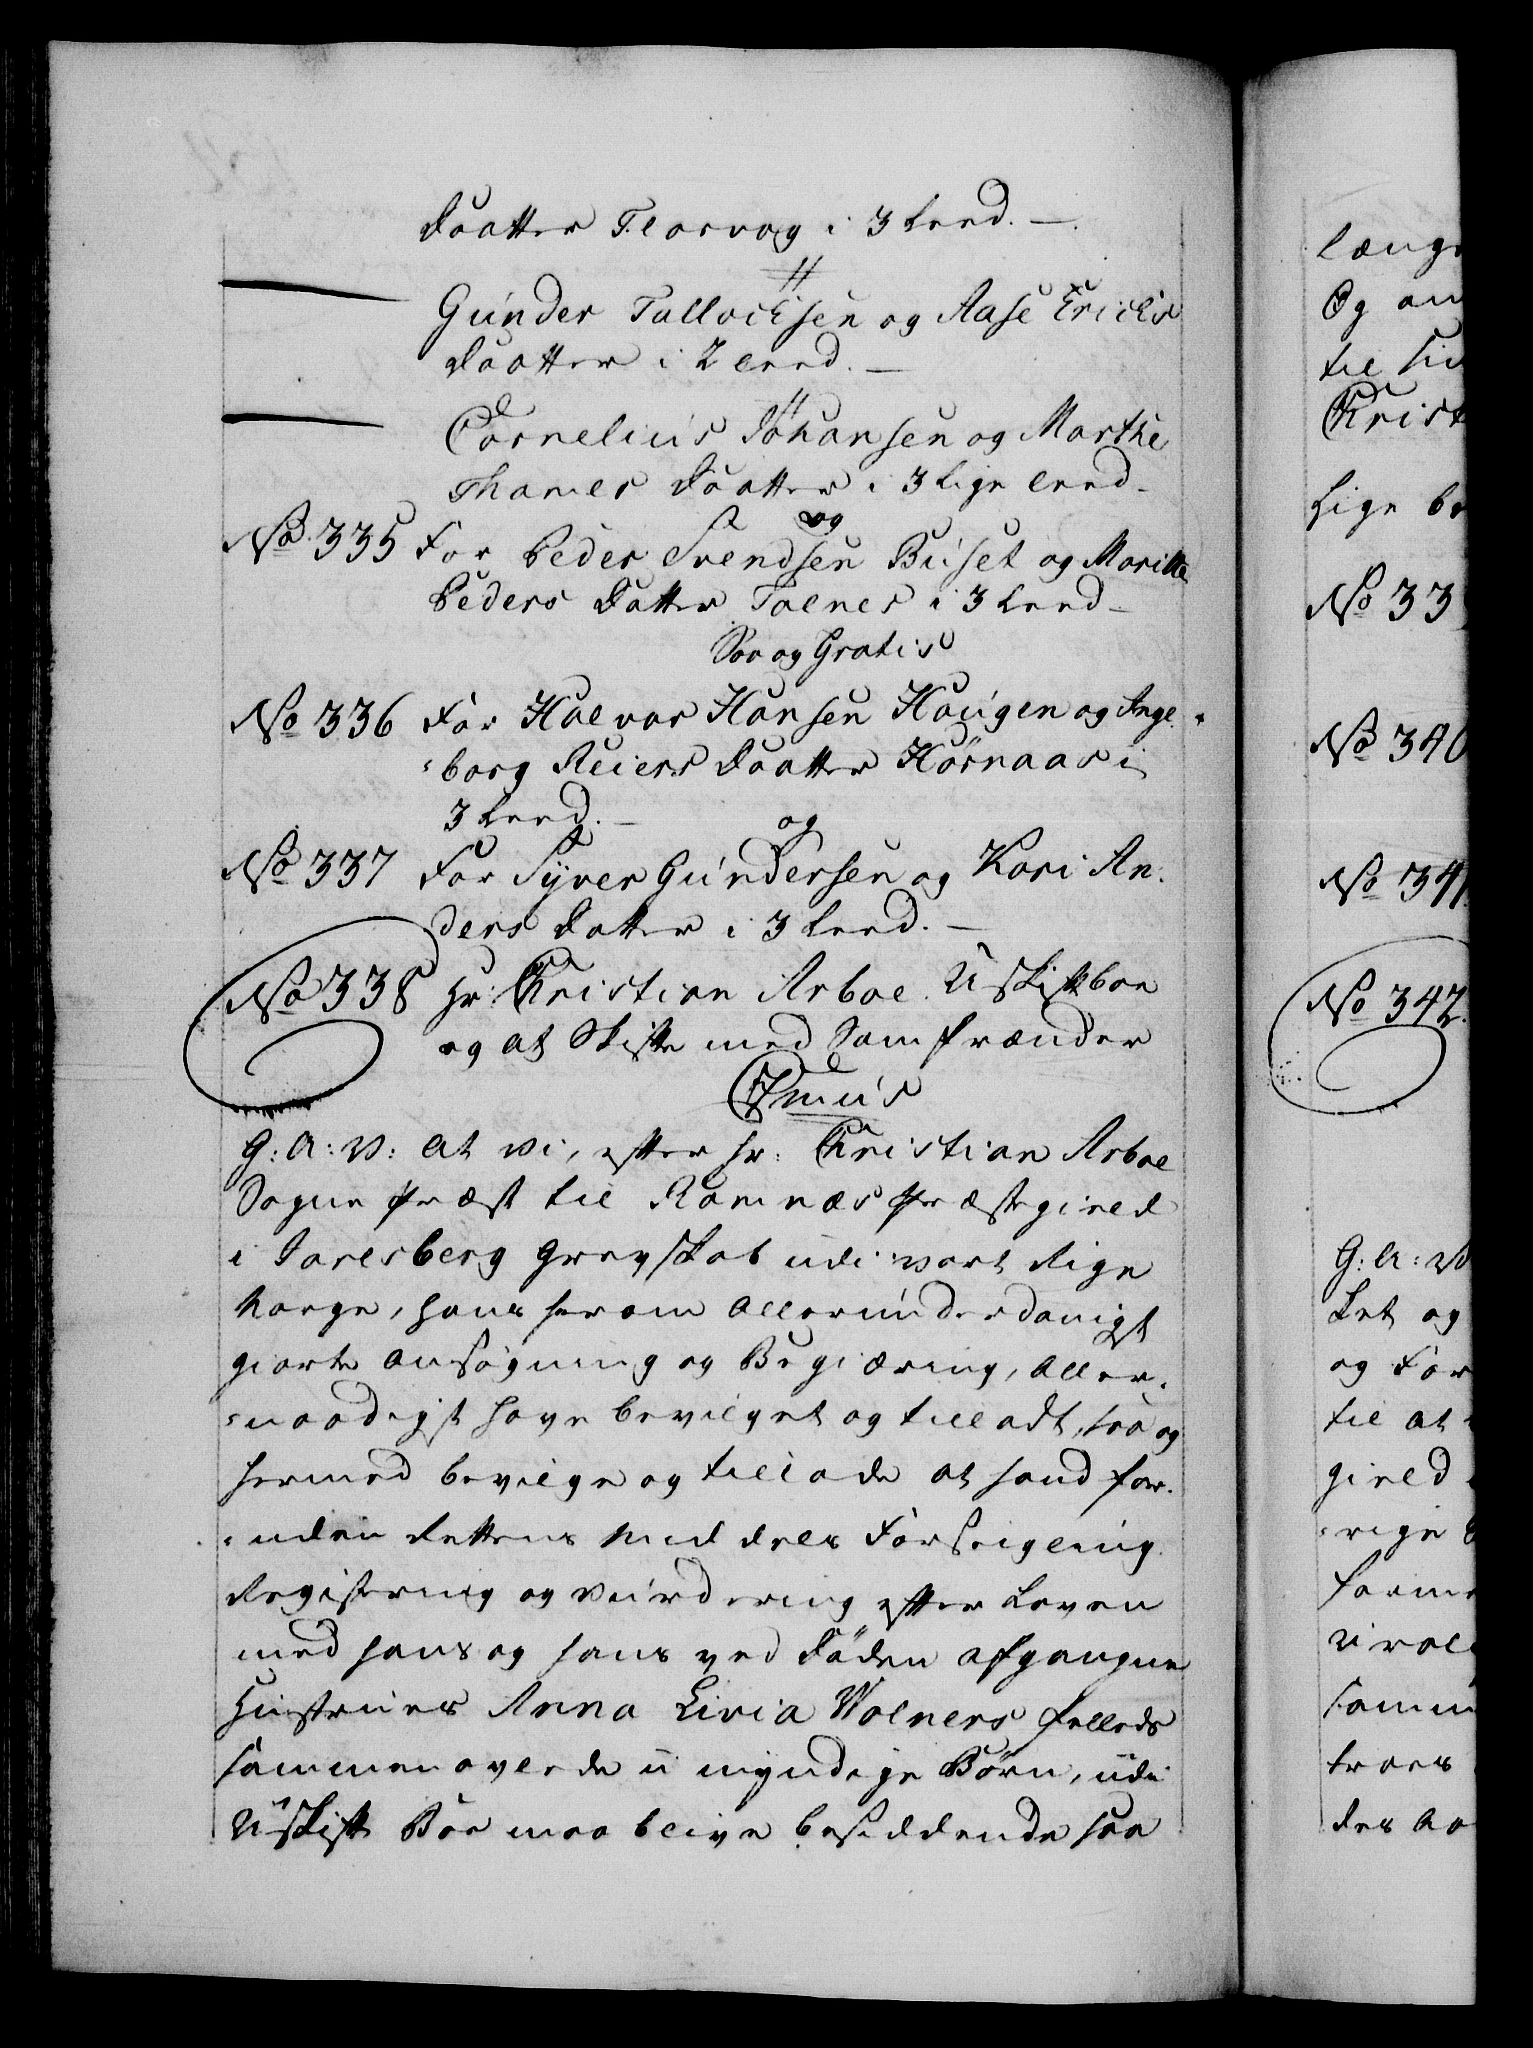 Daatter Florvog i 3 Leed. —
//
Gunder Tallocksen og Aase Erichs
Daatter i 2 Leed. —
//
Cornelius Johansen og Marthe
Thomes Daatter i 3 Lige Leed -
og
No. 335 For Peder Svendsen Buset og Maritte
Peders Datter Tolnes i 3 Leed -
Saa og Gratis
No 336 For Halvor Hansen Haugen og Inge-
-borg Reiers Daatter Hörnaas i
3 Leed. —
og
No 337 For Syver Gundersen og Kari An-
ders Datter i 3 Leed. —
No 338 Hr: Christian Arboe. Uskiftboe
og at Skifte med Samfrænder
Cr7mus
G: A: V: at vi, efter Hr: Christian Arboe
Sogne Præst til Ramnæs Præstegield
i Jarlsberg Grevskab udi vort Rige
Norge, hans herom Allerunderdanigst
giorte Ansøgning og Begiæring, Aller-
-naadigst have bevilget og tilladt, saa og
hermed bevilge og tillade at hand for-
-uden Rettens Middels Forseigling
Registering og Vurdering efter Loven
med hans og hans ved Döden afgangne
Hustrues Anna Livia Wolners fælleds
sammenavlede umyndige Børn, udi
Uskift Boe maa blive besiddende saa
længe
Og an
til
Christ
Lige be
No 33
No 340
No 341.
No 342.
G: A: V
Let og
og For
til at
gield
-rige
forme

samm
troes
des